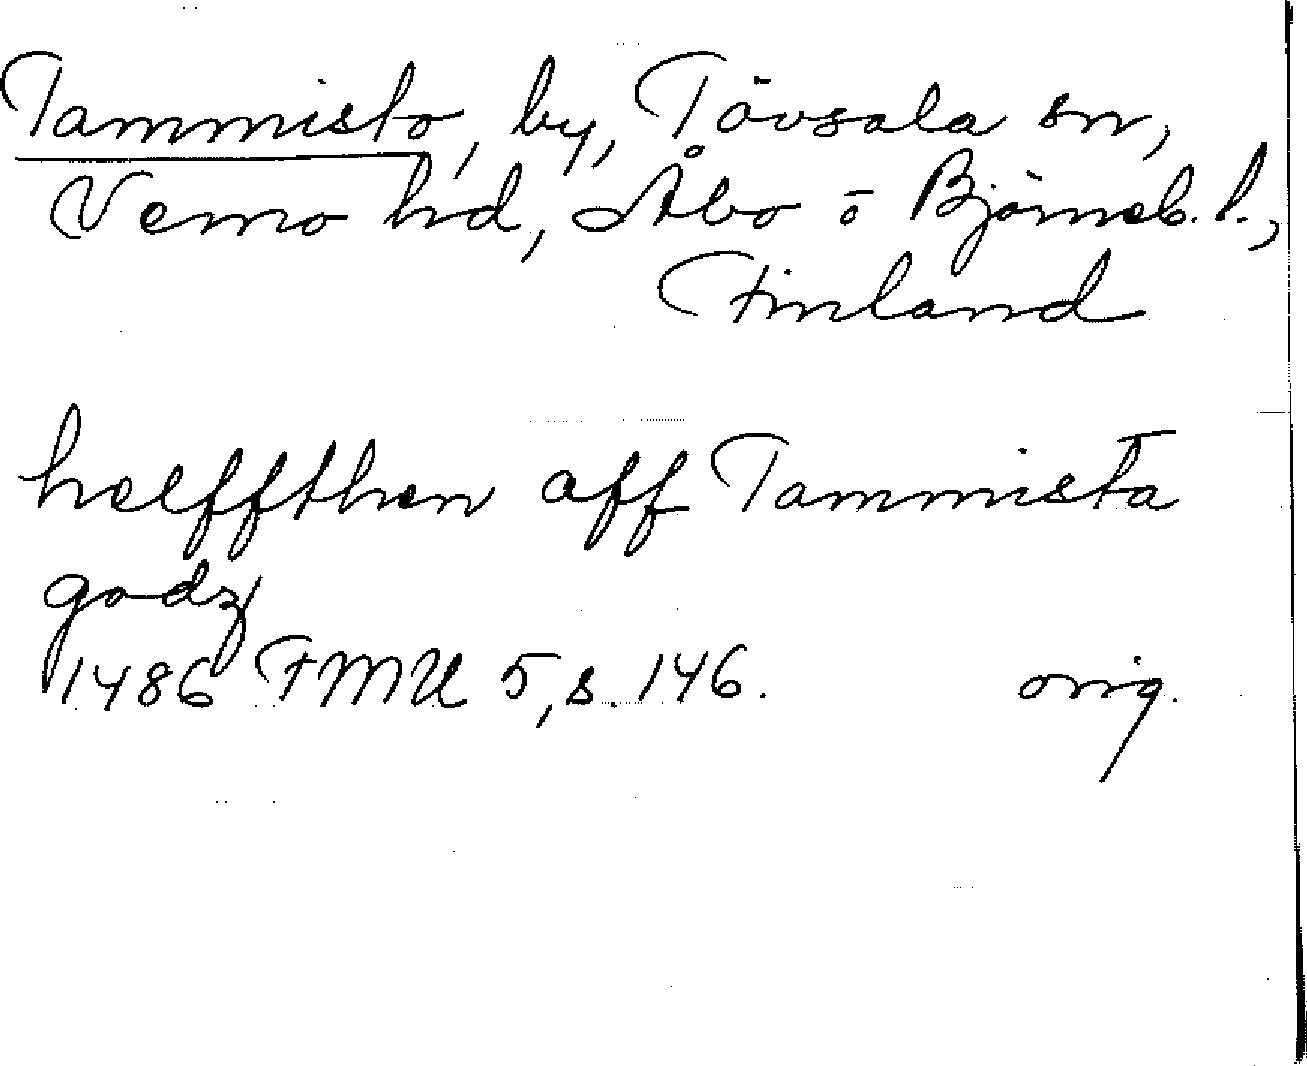 Tammisto, by, Tövsala sn,
Vemo hd, Åbo ō Björneb. l.,
Finland
helffthen aff Tammista
godz
1486 FMU 5, s. 146. orig.